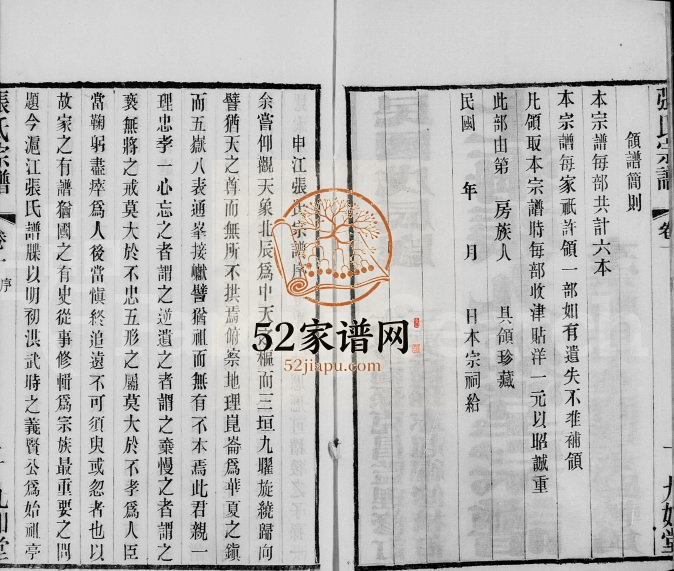 張氏宗譜
卷
一
九如堂
領譜簡則
本宗譜每部共計六本
本宗譜每家祇許領一部如有遺失不准補領
凡領取本宗譜時每部收津貼洋一元以昭誠重
此部由第 房族人 具領珍藏
民國 年 月 日本宗祠給
申江張氏宗譜序
余嘗仰觀天象北辰爲中天樞而三垣九曜旋繞歸向
譬猶天之尊而無所不拱焉俯察地理崑崙爲華夏之鎭
而五嶽八表通峯接巘譬猶祖而無有不本焉此君親一
理忠孝一心忘之者謂之逆遺之者謂之棄慢之者謂之
褻無將之戒莫大於不忠五形之屬莫大於不孝爲人臣
當鞠躬盡瘁爲人後當愼終追遠不可須臾或忽者也以
故家之有譜猶國之有史從事修輯爲宗族最重要之問
題今滬江張氏譜牒以明初洪武時之義賢公爲始祖亭
張氏宗譜
卷一 序
一 九如堂
52家谱网
52jiapu.com